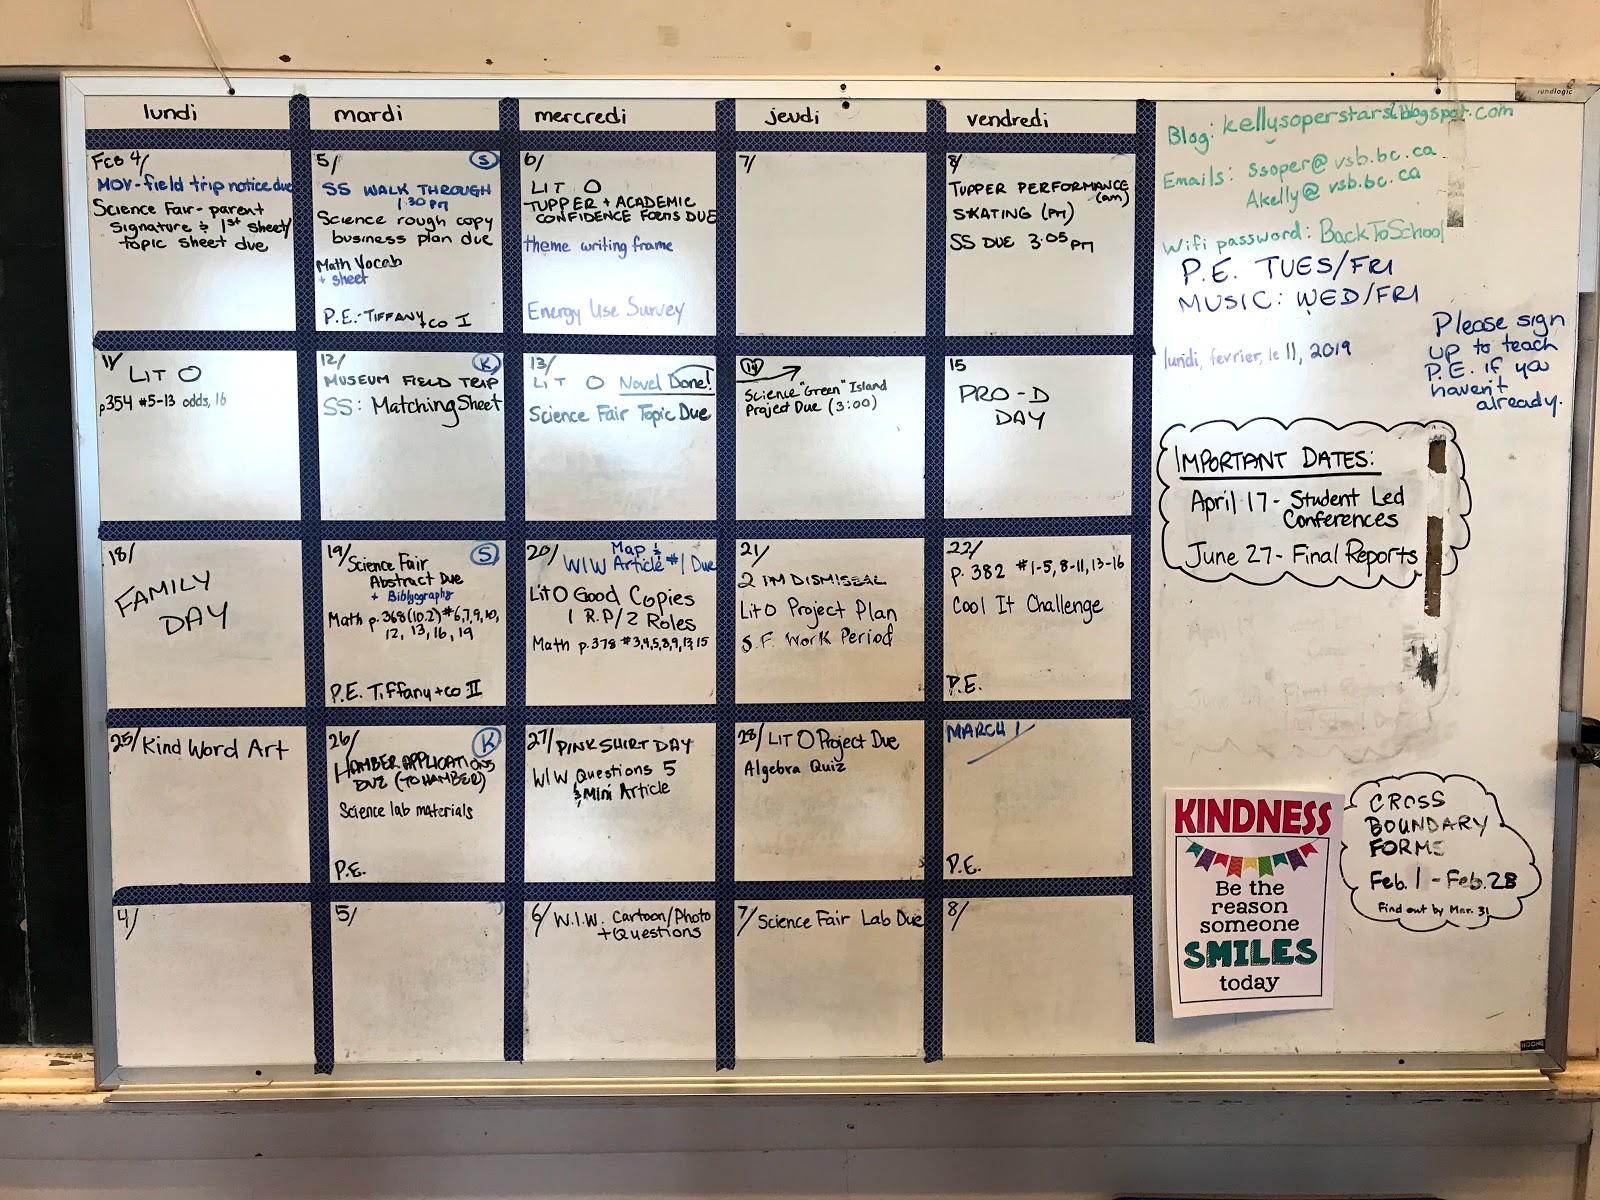 lundi
mardi
mercredi
jeudi
vendredi
Feb 4/
MOV-field trip notice due
Science Fair- parent
signature & 1st sheet/
topic sheet due
5/ S
SS WALK THROUGH
1:30 PM
Science rough copy
business plan due
Math Vocab
+ sheet
P.E.-TIFFANY + CO I
6/
LIT O
TUPPER + ACADEMIC
CONFIDENCE FORMS DUE
theme writing frame
Energy Use Survey
7/
8/
TUPPER PERFORMANCE
(am)
SKATING (PM)
SS DUE 3:05 PM
11/
LIT O
p354 #5-13 odds, 16
12/ K
MUSEUM FIELD TRIP
SS: Matching Sheet
13/
LIT O Novel Done!
Science Fair Topic Due
14
Science "Green" Island
Project Due (3:00)
15
PRO-D
DAY
18/
FAMILY
DAY
19/ S
Science Fair
Abstract Due
+ Biblyography
Math p.368(10.2) #6,7,9,10,
12, 13, 16, 19
P.E. Tiffany + co II
20/ Map &
W/W Article #1 Due
Lit O Good Copies
1 R.P/2 Roles
Math p.378 #3,4,5,8,9,13,15
21/
2 PM DISMISSAL
Lit O Project Plan
S.F. Work Period
22/
p. 382 #1-5, 8-11, 13-16
Cool It Challenge
P.E.
25/ Kind Word Art
26/ K
HAMBER APPLICATIONS
DUE (TO HAMBER)
Science lab materials
P.E.
27/ PINK SHIRT DAY
W/W Questions 5
& Mini Article
28/ LIT O Project Due
Algebra Quiz
MARCH 1/
P.E.
4/
5/
6/ W.I.W. Cartoon/Photo
+Questions
7/ Science Fair Lab Due
8/
Blog: kellysoperstars.blogspot.com
Emails: ssoper@vsb.bc.ca
Akelly@vsb.bc.ca
Wifi password: BackToSchool
P.E. TUES/FRI
MUSIC: WED/FRI
lundi, fevrier, le 11, 2019
Please sign
up to teach
P.E. if you
haven't
already.
IMPORTANT DATES:
April 17 - Student Led
Conferences
June 27 - Final Reports
KINDNESS
Be the
reason
someone
SMILES
today
CROSS
BOUNDARY
FORMS
Feb. 1 - Feb. 28
Find out by Mar. 31